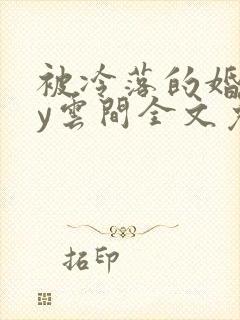 被冷落的婚
y雲間全文
拓印